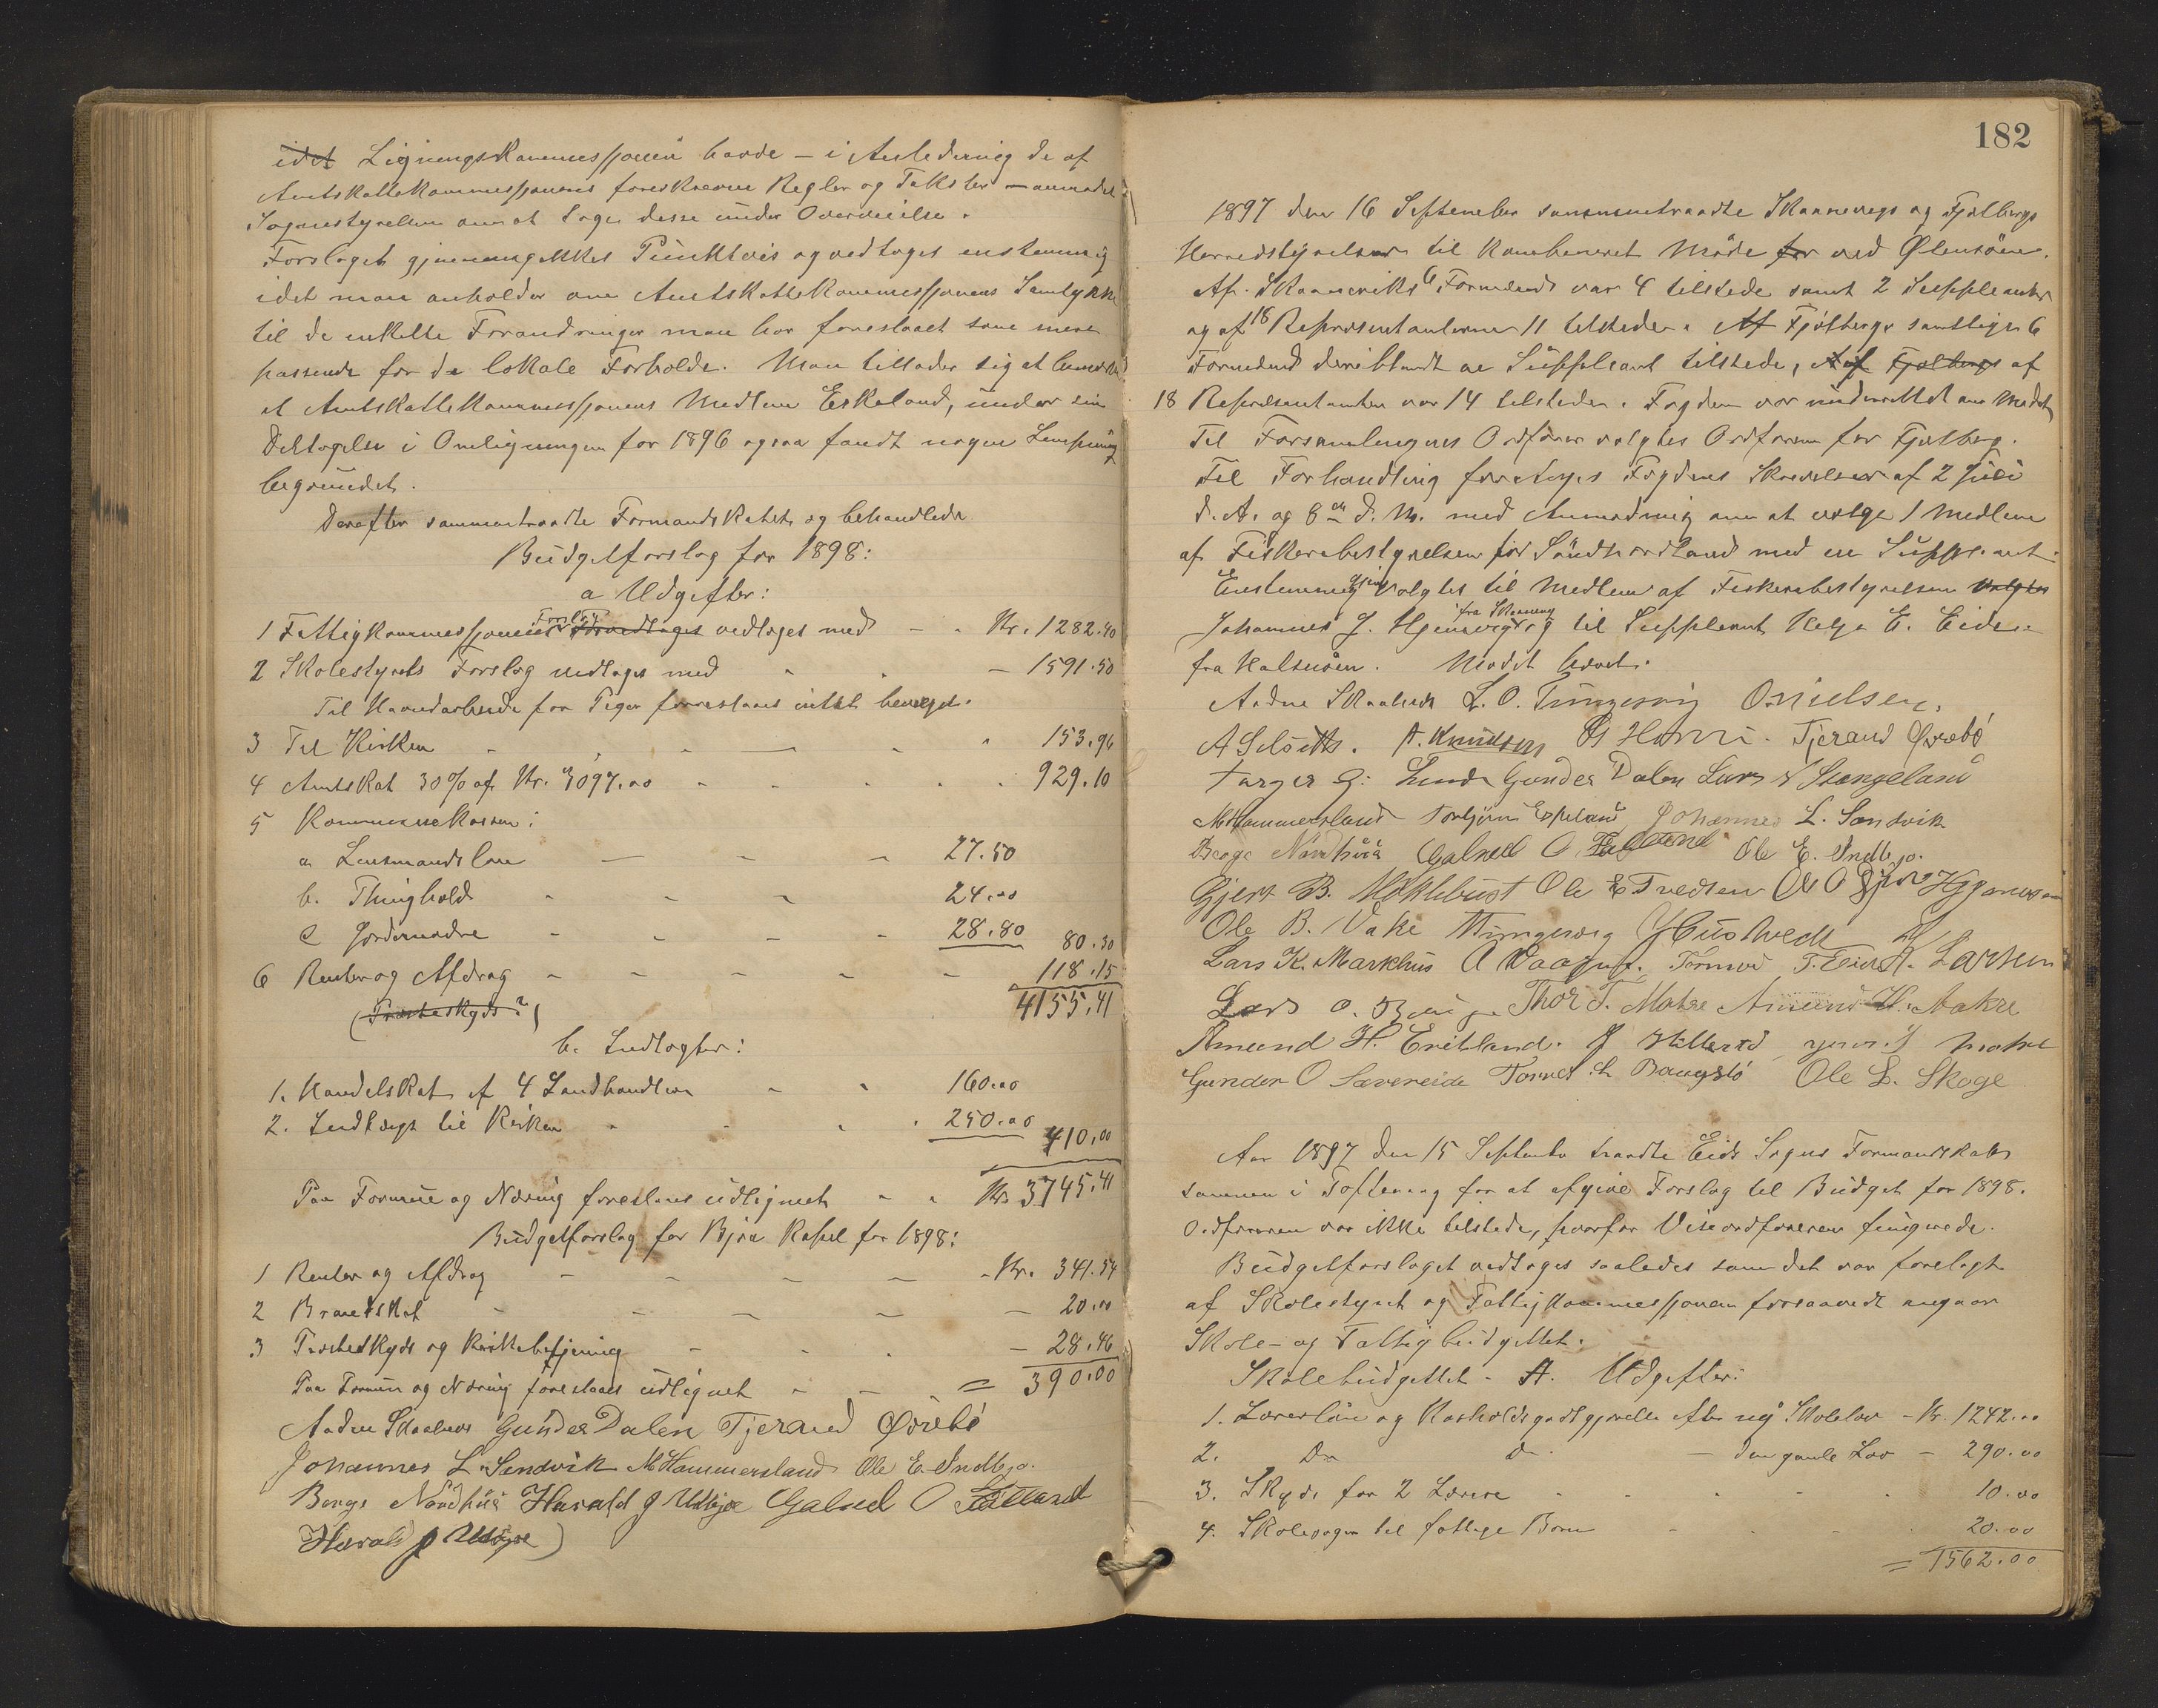 idet Ligningskommissjonen havde – i Anledning de af
Amtskattekommissjonens foreskrevne Regler og Takster – anmodet
Sognestyrelsen om at tage disse under Overveielse.
Forslaget gjennemgikkes Punktvis og vedtoges enstemmig
idet man anholder om Amtskattekommissjonens Samtykke
til de enkelte Forandringer man har foreslaaet som mere
passende for de lokale Forholde. Man tillader sig at bemærke
at Amtskattekommissjonens Medlem Eskeland, under sin
Deltagelse i Omligningen for 1896 ogsaa fandt nogen Lempning
begrundet.
Derefter sammentraadte Formandskabet og behandlede
Budgetforslag for 1898:
a Udgifter:
1 Fattigkommissjonens Forslag vedtoges med – Kr. 1282.40
2 Skolestyrets Forslag vedtoges med – 1591.50
Til Haandarbeide for Piger foreslaaes intet bevilget.
3 Til Kirken 153.96
4 Amtskat 30% af Kr. 3097.00 929.10
5 Kommunekassen:
a Lensmandsløn 27.50
b. Thinghold 24.00
c Jordemødre 28.80 80.30
6 Renter og Afdrag 118.15
4155.41
b. Indtægter:
1. Handelskat af 4 Landhandlere 160.00
2. Indtægt til Kirken 250.00 410.00
Paa Formue og Næring foreslaaes udlignet Kr. 3745.41
Budgetforslag for Bjoa Kapel for 1898:
1 Renter og Afdrag Kr. 341.54
2 Brandskat 20.00
3 Præsteskyds og Kirkebetjening 28.46
Paa Formue og Næring foreslaaes udlignet = 390.00
Aadne Skaalnes Gunder Dalen Tjerand Øvrebö
Johannes L. Sandvik M Hammersland Ole E. Indbjo.
Berge Nordhuu Harald J Udbjoe Galned O
Harald J Udbjoe
182
1897 den 16 September sammentraadte Skaanevigs og Fjelbergs
Herredstyrelser til kombineret Møde for ved Ølensøen.
Af Skaaneviks 6 Formænd var 4 tilstede samt 2 Suppleanter
og af 18 Repræsentanterne 11 tilstede. Af Fjelbergs samtlige 6
Formænd deriblandt en Suppleant tilstede, af Fjelbergs af
18 Repræsentanter var 14 tilstede. Fogden var underrettet om Mødet
Til Forsamlingens Ordfører valgtes Ordføreren for Fjelberg.
Til Forhandling foretoges Fogdens Skrivelser af 2 Juli
d. A. og 8de d. M. med Anmodning om at vælge 1 Medlem
af Fiskeribestyrelsen for Söndhordland med en Suppleant.
Enstemmig gjenvalgtes til Medlem af Fiskeribestyrelsen valgtes
Johannes J. fra Skaanevig og til Suppleant Helge E. Eide
fra Halsnöen. Mødet hævet.
Aadne Skaalnes L. O. Tungesvig O. Nielsen.
A. Knudsen Tjerand Øvrebö
Torger G. Lunde Gunder Dalen Lars Stangeland
M Hammersland Torbjørn Espeland Johannes L. Sandvik
Berge Nordhuu Galned O Ole E. Indbjo.
Gjert B. Mokkebust Ole E Tvedten
Ole B. Vake Tungesvig J Hustvedt
Lars K. Markhus A Vaage Tormod T. Eide A. Larsen
Lars O. Thor T. Matre Amund H. Aakre
Amund H. Matre
Gunder O Sævereide Tormod L. Ole L. Skoge
Aar 1897 den 15 September traadte Eids Sogns Formandskab
sammen i Toftevaag for at afgive Forslag til Budget for 1898.
Ordføreren var ikke tilstede, hvorfor Viseordføreren fungerede.
Budgetforslaget vedtoges saaledes som det var forelagt
af Skolestyret og Fattigkommissjonen forsaavidt angaar
Skole- og Fattigbudgettet.
Skolebudgettet. A. Udgifter:
1. Lærerløn og Kostholdsgodtgjørelse efter ny Skolelov – Kr. 1242.00
2. Do Do – den gamle Lov – 290.00
3. Skyds for 2 Lærere 10.00
4. Skolesager til fattige Børn 20.00
= 1562.00